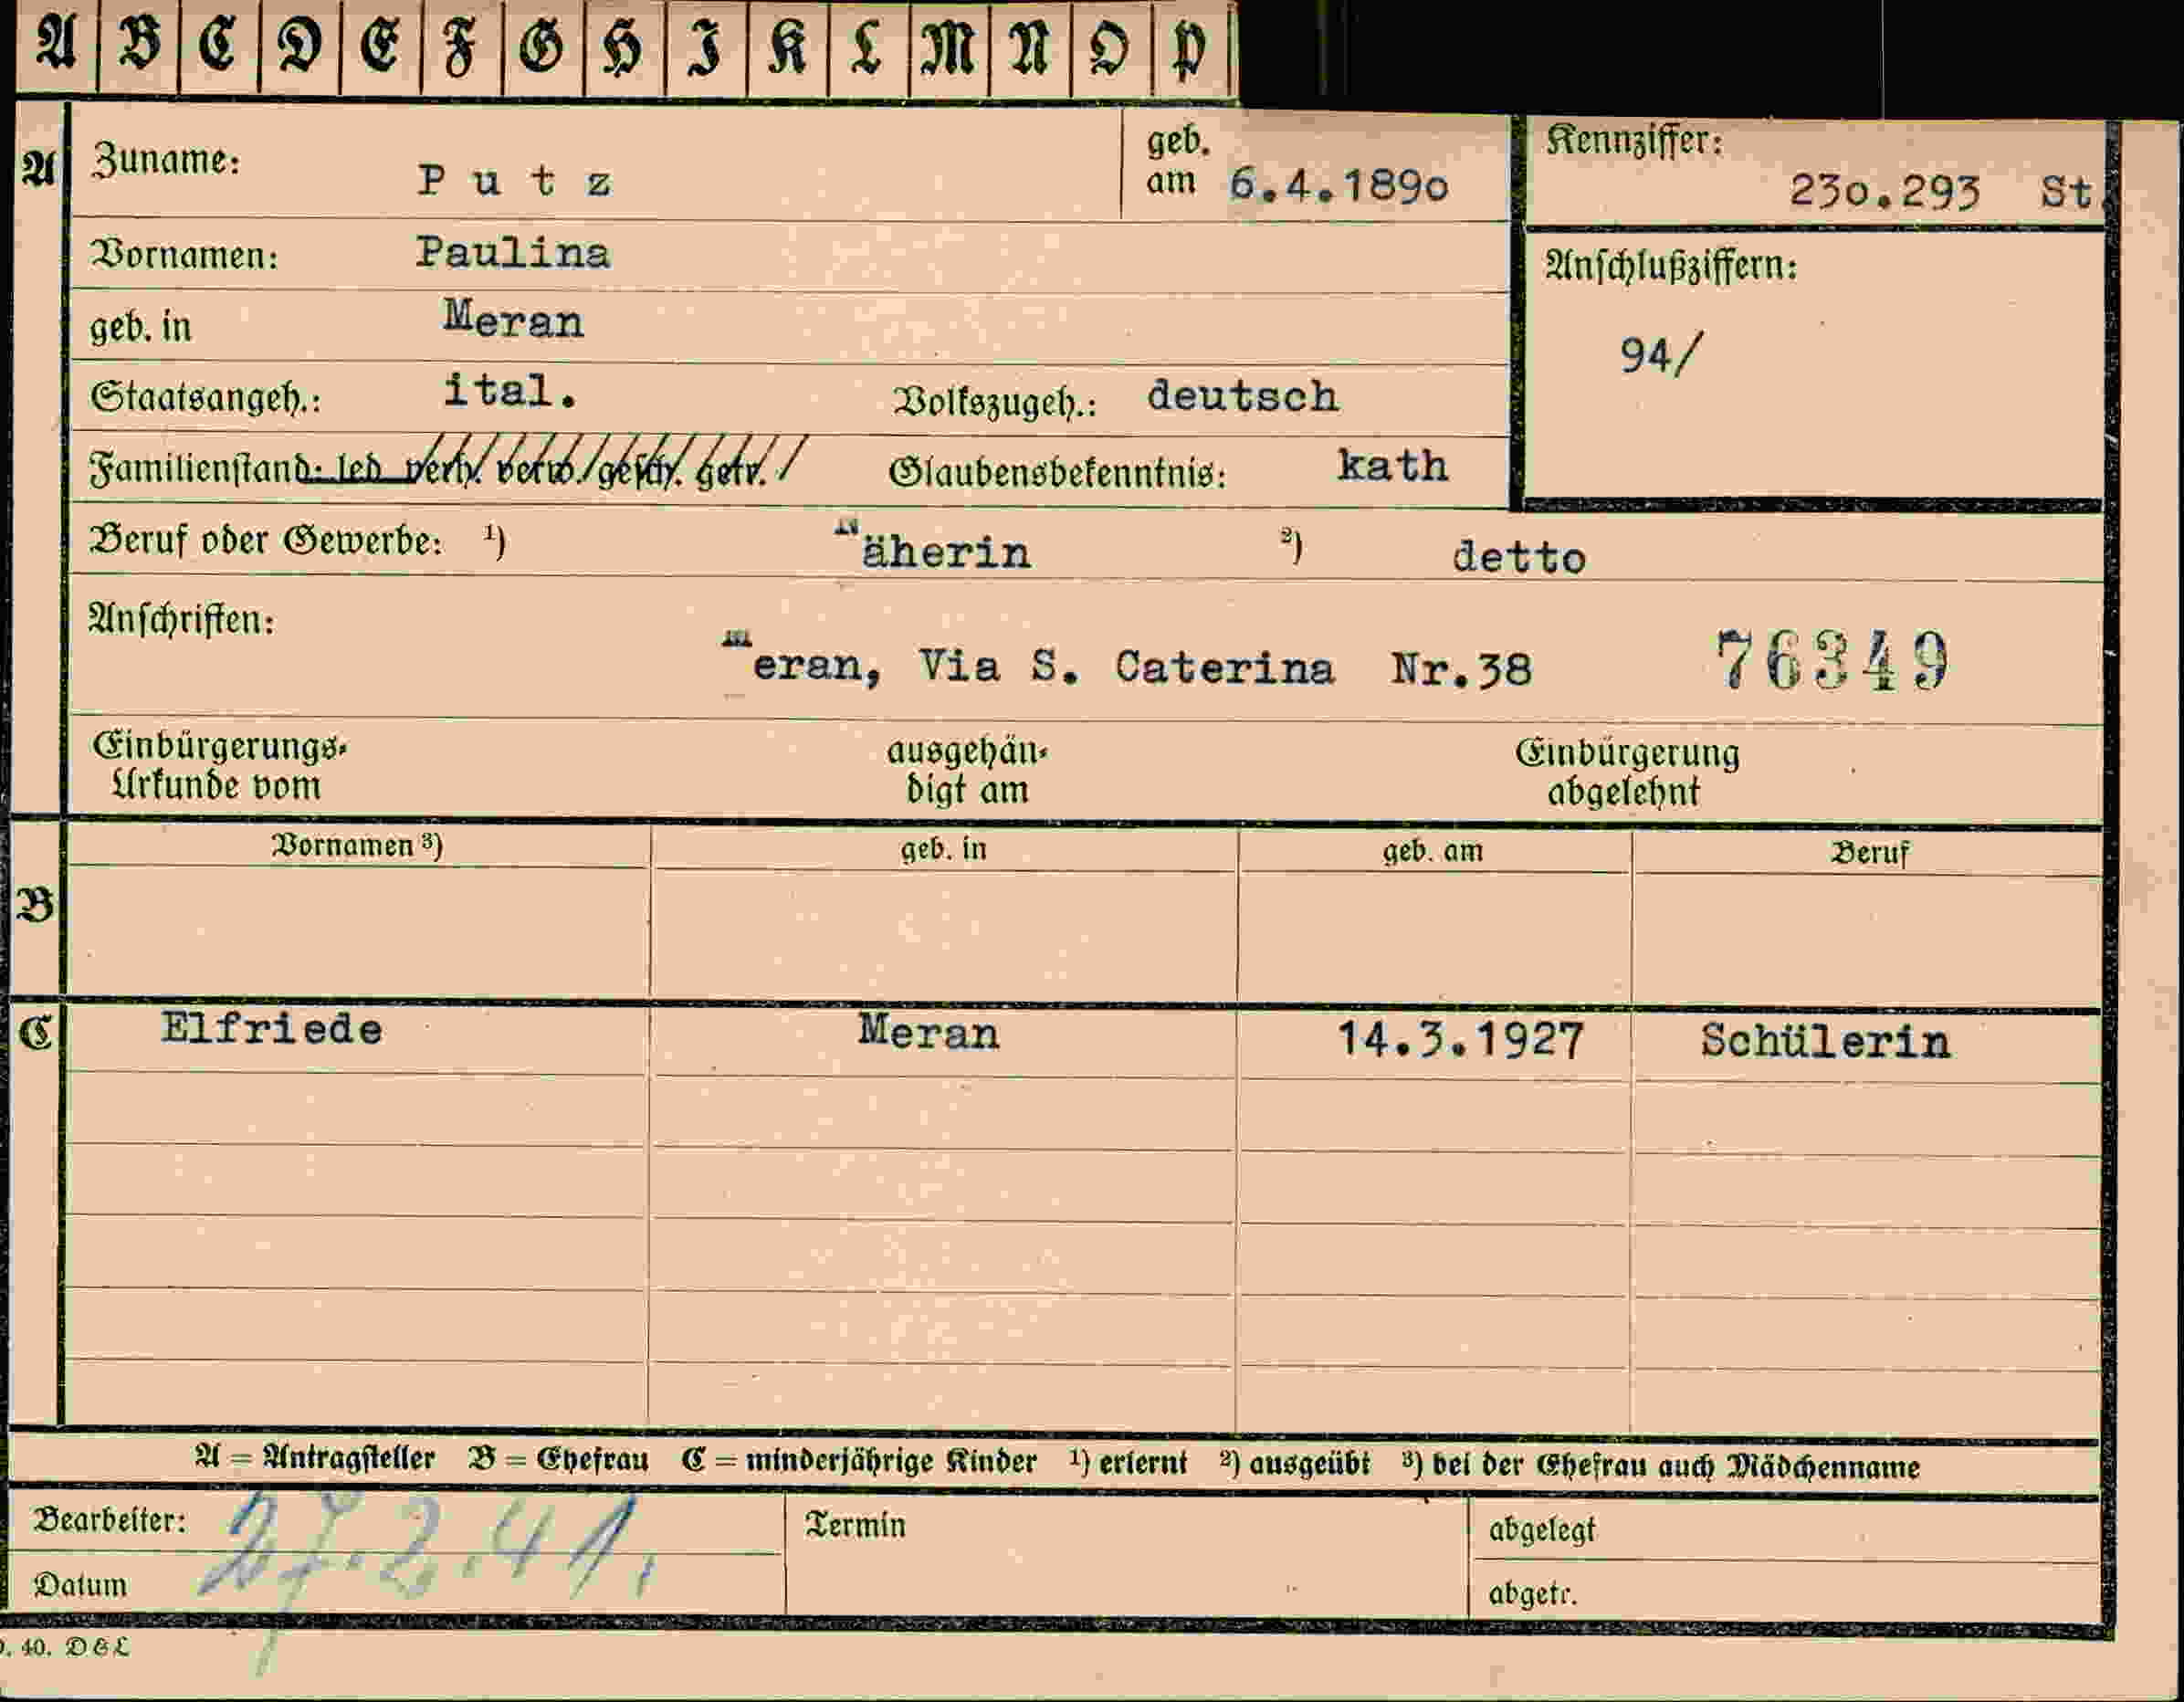 A B C D E F G H I K L M N O P
A Zuname: Putz geb. am 6.4.1890 Kennziffer: 230.293 St.
Vornamen: Paulina
geb. in Meran
Anschlußziffern:
94/
Staatsangeh.: ital. Volkszugeh.: deutsch
Familienstand: led verh. verw. gesch. getr. Glaubensbekenntnis: kath
Beruf oder Gewerbe: 1) Näherin 2) detto
Anschriften:
Meran, Via S. Caterina Nr.38 76349
Einbürgerungs-Urkunde vom ausgehändigt am Einbürgerung abgelehnt
B Vornamen 3) geb. in geb. am Beruf
C Elfriede Meran 14.3.1927 Schülerin
A = Antragsteller B = Ehefrau C = minderjährige Kinder 1) erlernt 2) ausgeübt 3) bei der Ehefrau auch Mädchenname
Bearbeiter: 27.2.41. Termin abgelegt
Datum abgetr.
. 40. D&L